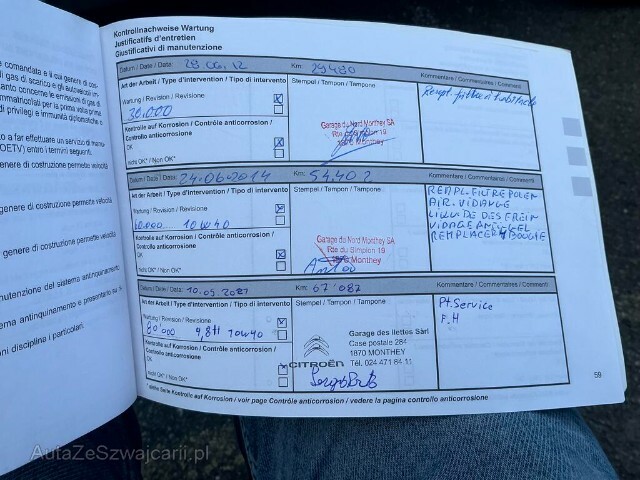 comandata e il cui genere di cos-
di gas di scarico e gli autoveicoli im-
tanto concerne le emissioni di gas di
immatricolati per la prima volta prima
di privilegi e immunità diplomatiche o
o a far effettuare un servizio di manu-
OETV) entro i termini seguenti.
genere di costruzione permette velocità
genere di costruzione permette velocità
di costruzione permette velocità
nutenzione del sistema antinquinamento
ema antinquinamento e presentarlo su
ni disciplina i particolari.
Kontrollnachweise Wartung
Justificatifs d'entretien
Giustificativi di manutenzione
Datum / Date / Data: 28.06.12 Km: 29480 Kommentare / Commentaires / Commenti
Art der Arbeit / Type d'intervention / Tipo di intervento Stempel / Tampon / Tampone
Wartung / Revision / Revisione
30.000
Kontrolle auf Korrosion / Contrôle anticorrosion /
Controllo anticorrosione
OK
nicht OK* / Non OK*
Garage du Nord Monthey SA
Rte du Simplon 19
Monthey
Datum / Date / Data: 24-06-2014 Km: 54.402 Kommentare / Commentaires / Commenti
Art der Arbeit / Type d'intervention / Tipo di intervento Stempel / Tampon / Tampone
REMPL. FILTRE POLEN
AIR. VIDANGE
LIQUIDE DES FREIN
REMPLACER 4 BOUGIE
Wartung / Revision / Revisione
60.000 10W40
Kontrolle auf Korrosion / Contrôle anticorrosion /
Controllo anticorrosione
OK
nicht OK* / Non OK*
Garage du Nord Monthey SA
Rte du Simplon 19
Monthey
Datum / Date / Data: 10.05.2021 Km: 67'087 Kommentare / Commentaires / Commenti
Art der Arbeit / Type d'intervention / Tipo di intervento Stempel / Tampon / Tampone
Pt. Service
F.H
Wartung / Revision / Revisione
80'000 4,8lt 10W40
Kontrolle auf Korrosion / Contrôle anticorrosion /
Controllo anticorrosione
OK
nicht OK* / Non OK*
CITROËN
Garage des Ilettes Sàrl
Case postale 284
1870 MONTHEY
Tél. 024 471 84 11
* siehe Seite Kontrolle auf Korrosion / voir page Contrôle anticorrosion / vedere la pagina controllo anticorrosione
59
AutaZeSzwajcarii.pl